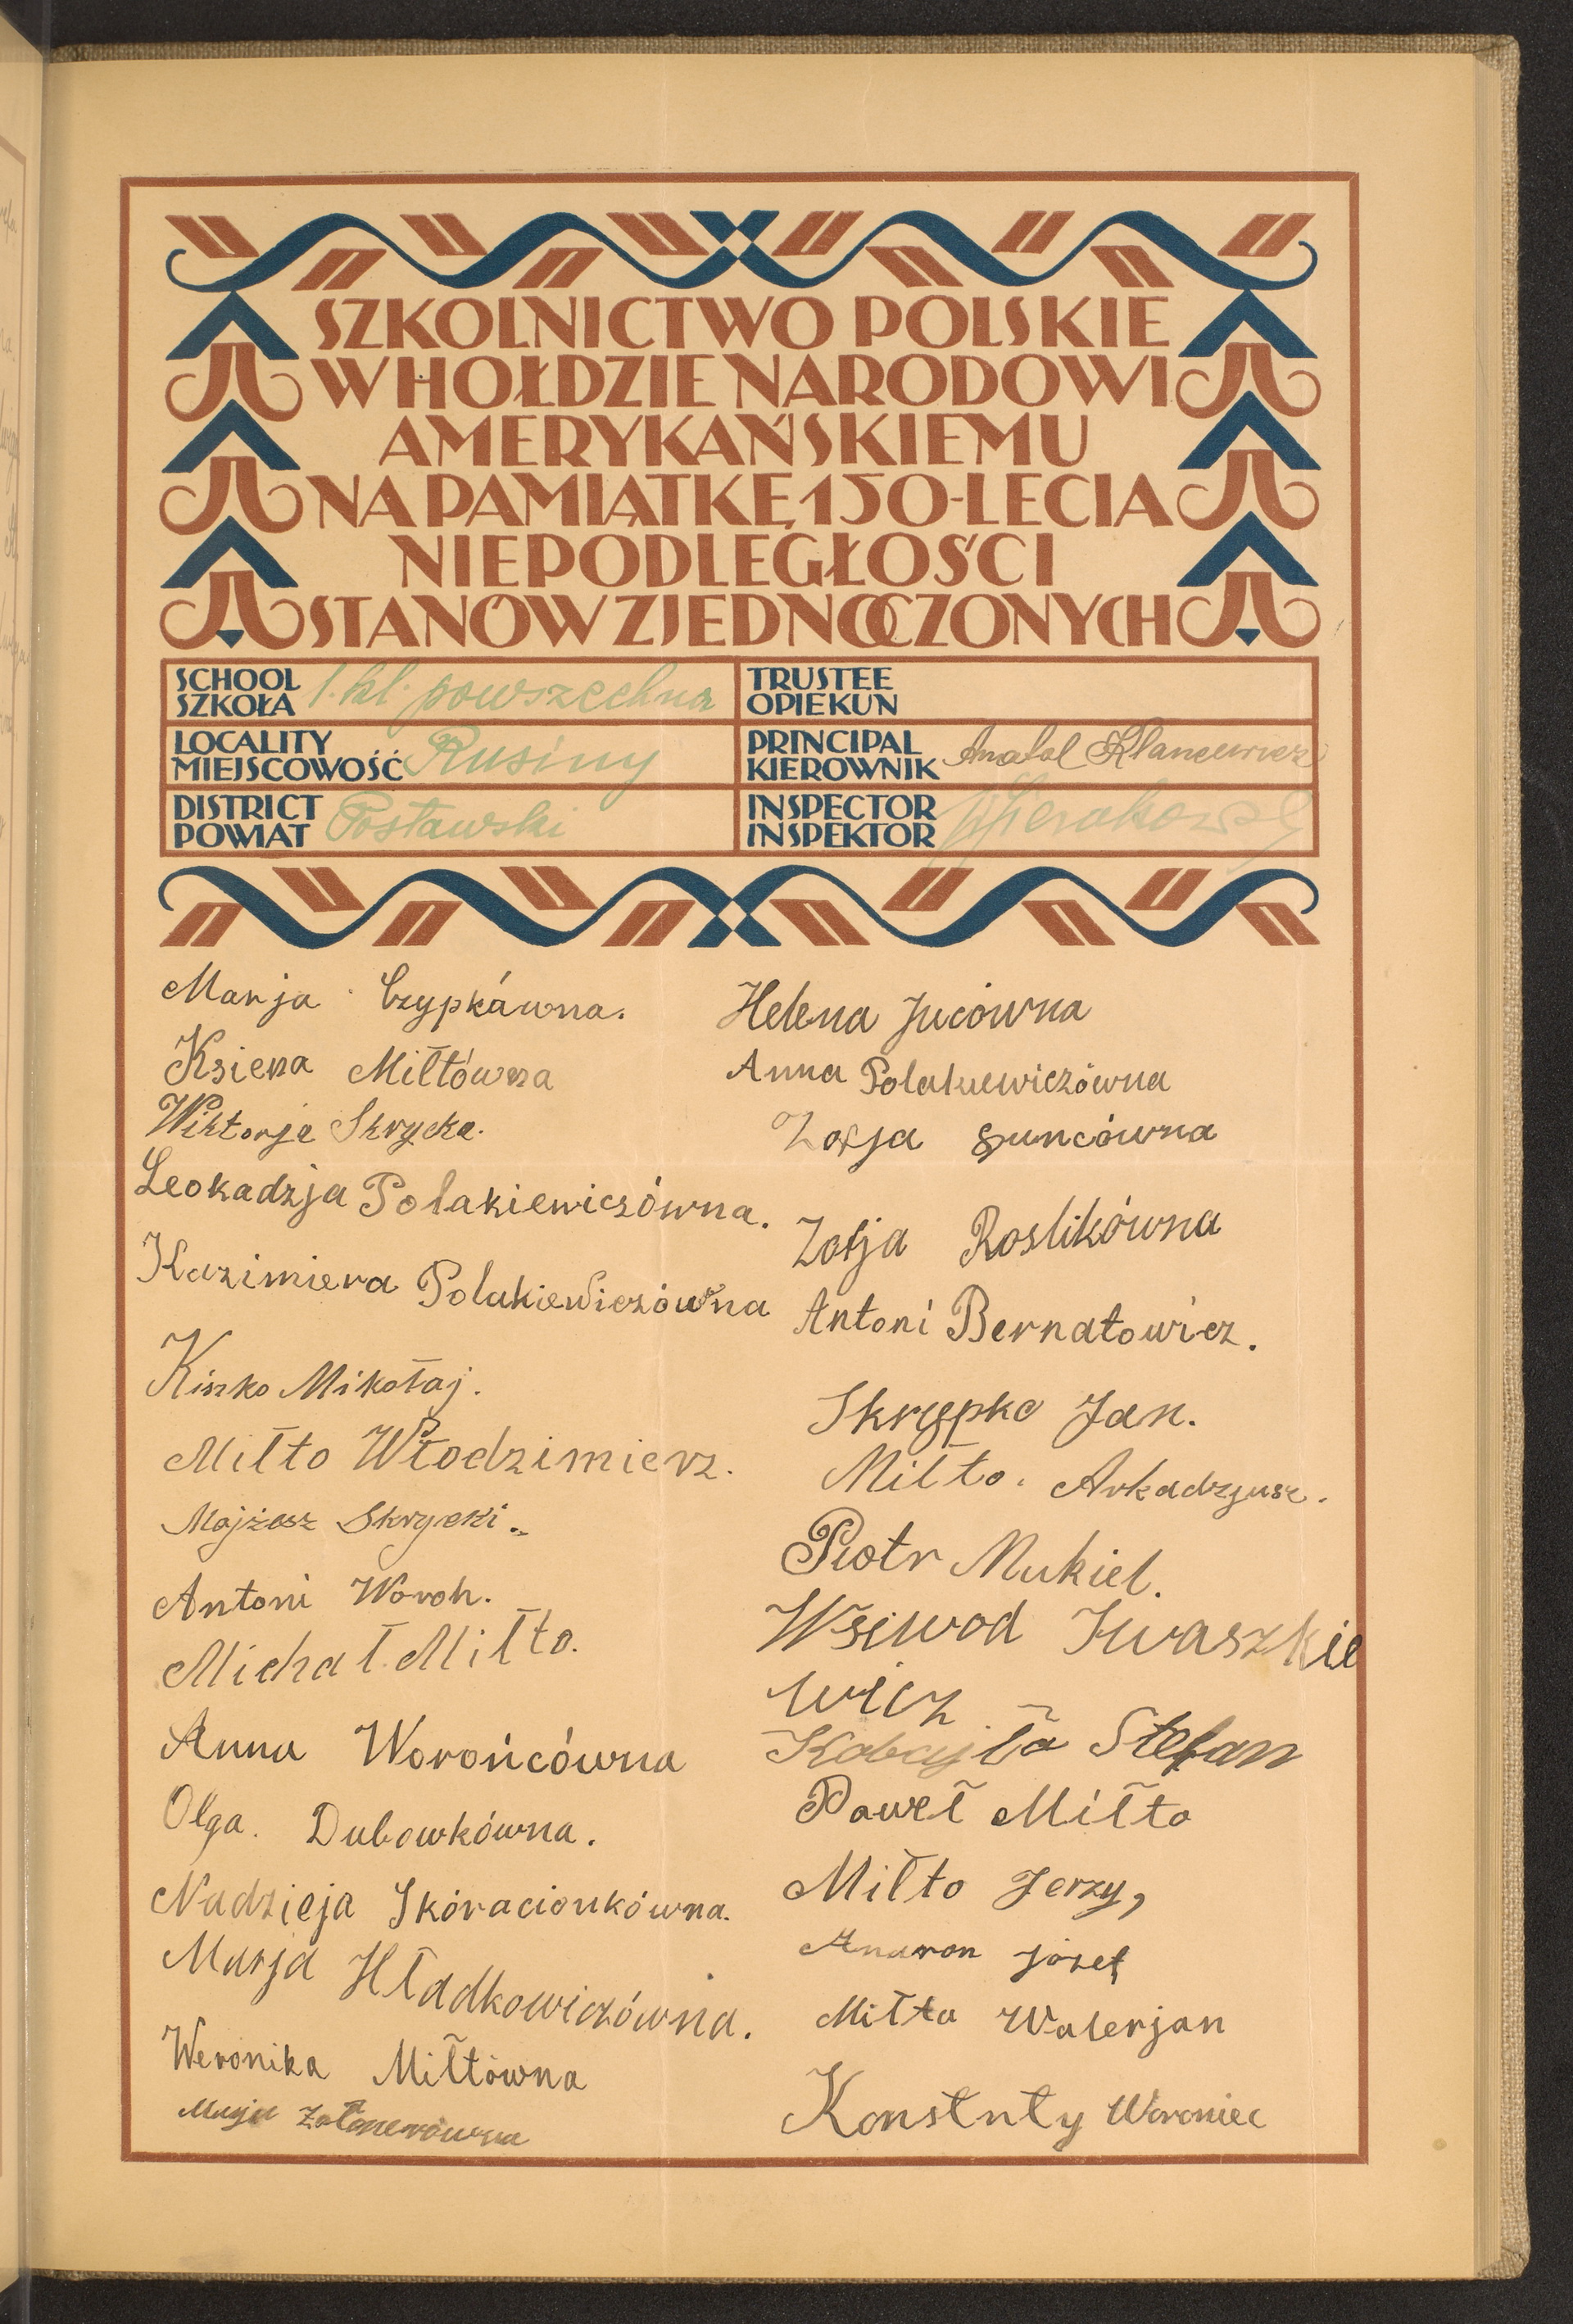 SZKOLNICTWO POLSKIE
W HOŁDZIE NARODOWI
AMERYKAŃSKIEMU
NA PAMIĄTKĘ 150-LECIA
NIEPODLEGŁOŚCI
STANÓW ZJEDNOCZONYCH
SCHOOL
SZKOŁA 1. kl. powszechna
LOCALITY
MIEJSCOWOŚĆ Rusiny
DISTRICT
POWIAT Postawski
TRUSTEE
OPIEKUN
PRINCIPAL
KIEROWNIK Anatol Klancewicz
INSPECTOR
INSPEKTOR
Marja Czypkówna.
Ksiena Miłtówna
Wiktorja Skrycka.
Leokadzja Polakiewiczówna.
Kazimiera Polakiewiczówna
Kinko Mikołaj.
Miłto Włodzimierz.
Mojżesz Skrycki.
Antoni Woroh.
Michał Miłto.
Anna Worońcówna
Olga. Dubowkówna.
Nadzieja Skóracionkówna.
Marja Hładkowiczówna.
Weronika Miłtówna
Marja
Helena Jucówna
Anna Polakiewiczówna
Zofja Suncówna
Zofja Roslikówna
Antoni Bernatowicz.
Skrypko Jan.
Miłto. Arkadzjusz.
Piotr Mukiel.
Wsiwod Iwaszkie
wicz
Kobyła Stefan
Paweł Miłto
Miłto Jerzy,
Anaron józef
Miłto Walerjan
Konstnty Woroniec